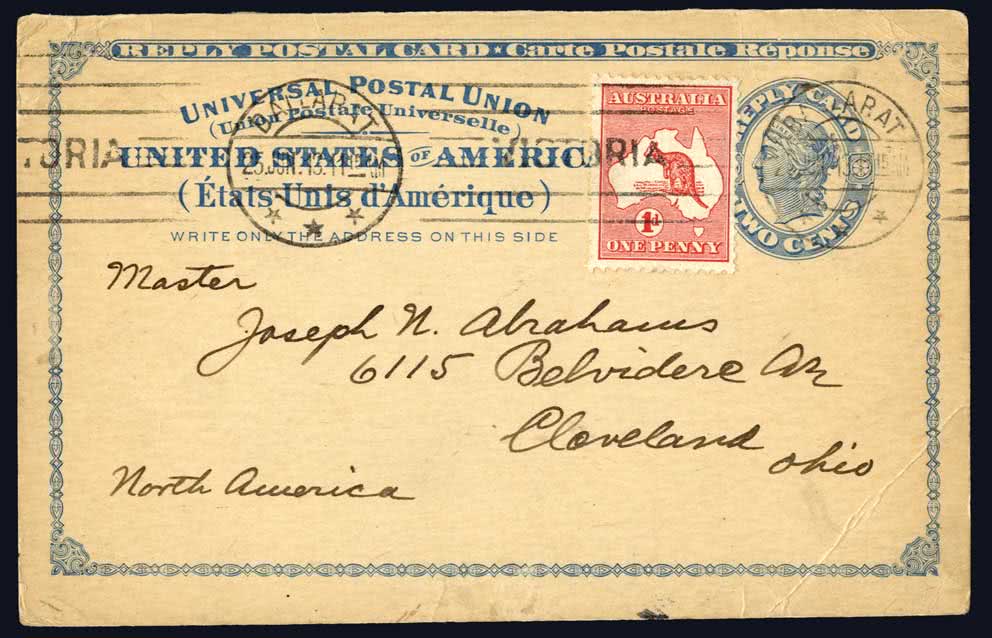 REPLY POSTAL CARD ★ Carte Postale Réponse
UNIVERSAL POSTAL UNION
(Union Postale Universelle)
UNITED STATES OF AMERICA
(États-Unis d'Amérique)
WRITE ONLY THE ADDRESS ON THIS SIDE
BALLARAT
25.JUN.13.11
TORIA
VICTORIA
AUSTRALIA
POSTAGE
1d
ONE PENNY
REPLY CARD
TWO CENTS
ARAT
Master
Joseph N. Abrahams
6115 Belvidere Av
Cleveland
Ohio
North America